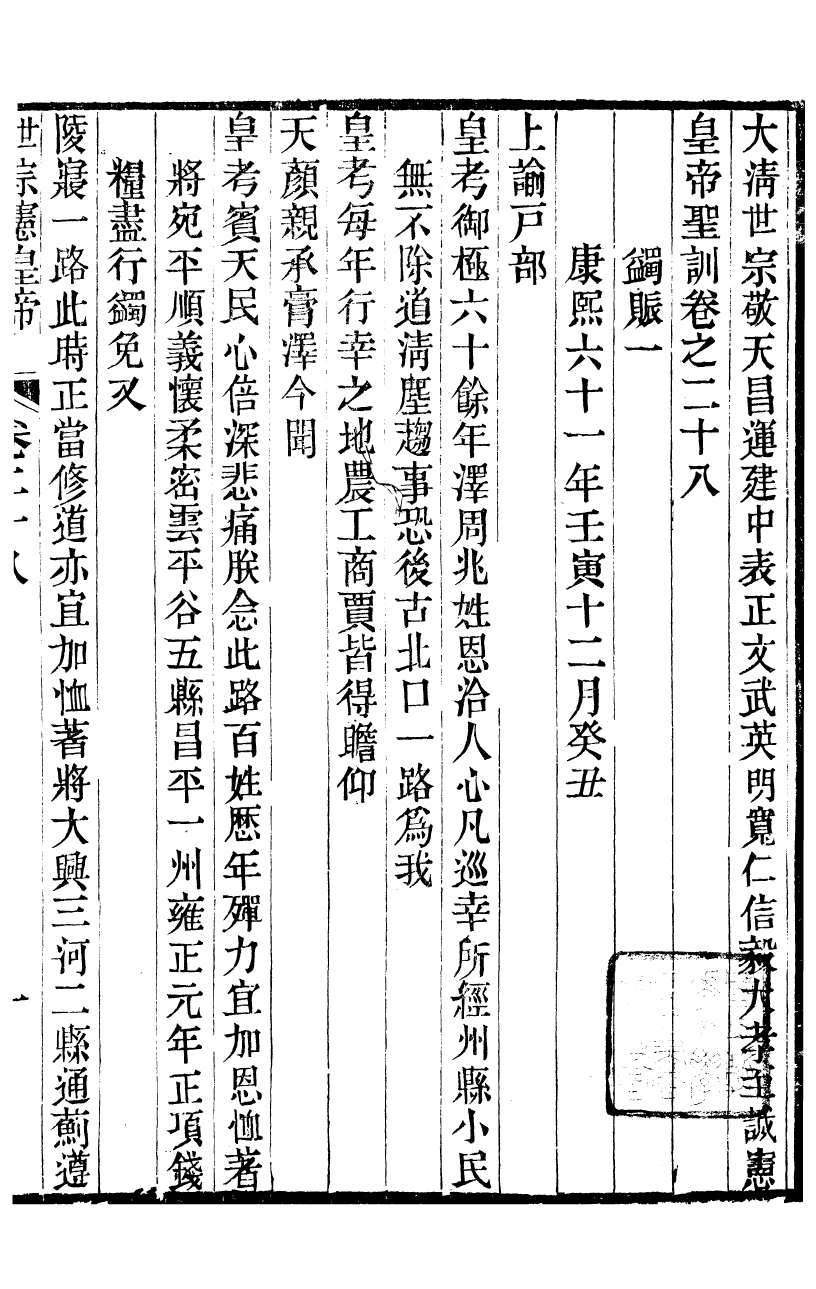 大淸世宗敬天昌運建中表正文武英明寬仁信毅大孝至誠憲
皇帝聖訓卷之二十八
蠲賑一
康熙六十一年壬寅十二月癸丑
上諭戸部
皇考御極六十餘年澤周兆姓恩洽人心凡巡幸所經州縣小民
無不除道淸塵趨事恐後古北口一路爲我
皇考每年行幸之地農工商賈皆得瞻仰
天顏親承膏澤今聞
皇考賓天民心倍深悲痛朕念此路百姓歷年殫力宜加恩恤著
將宛平順義懷柔密雲平谷五縣昌平一州雍正元年正項錢
糧盡行蠲免又
陵寢一路此時正當修道亦宜加恤著將大興三河二縣通薊遵
世宗憲皇帝 卷二十八 一